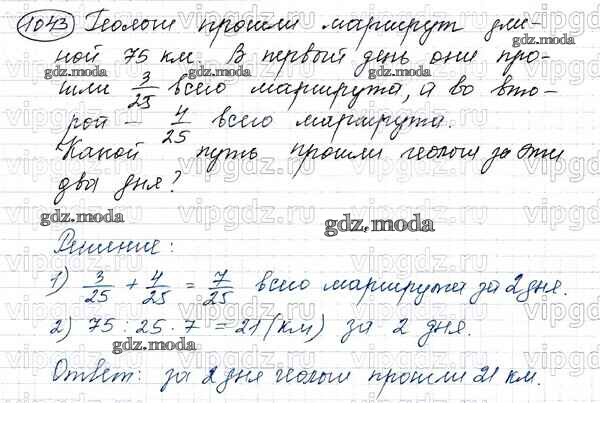 1043 Геологи прошли маршрут дли-
ной 75 км. В первый день они про-
шли 3/25 всего маршрута, а во вто-
рой - 4/25 всего маршрута.
Какой путь прошли геологи за эти
два дня?
Решение:
1) 3/25 + 4/25 = 7/25 всего маршрута за 2 дня.
2) 75 : 25 · 7 = 21 (км) за 2 дня.
Ответ: за 2 дня геологи прошли 21 км.
gdz.moda
gdz.moda
gdz.moda
gdz.moda
gdz.moda
gdz.moda
vipgdz.ru